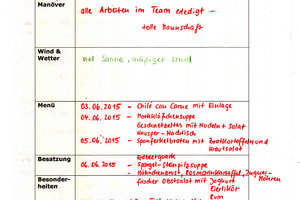 Manöver
alle Arbeiten im Team erledigt –
tolle Mannschaft
Wind &
Wetter
viel Sonne, mäßiger Wind
Menü
03.06.2015 – Chile con Carne mit Einlage
04.06.2015 –
Geschnetzeltes mit Nudeln + Salat
Knusper-
05.06.2015 – Spanferkelbraten mit Bratkartoffeln und
Krautsalat
Besatzung
06.06.2015 – Spargel-Steinpilzsuppe
Hähnchenbrust, Rosmarinkartoffel,
Möhren
Besonder-
heiten
frischer Obstsalat mit Joghurt
Eierlikör
Rum